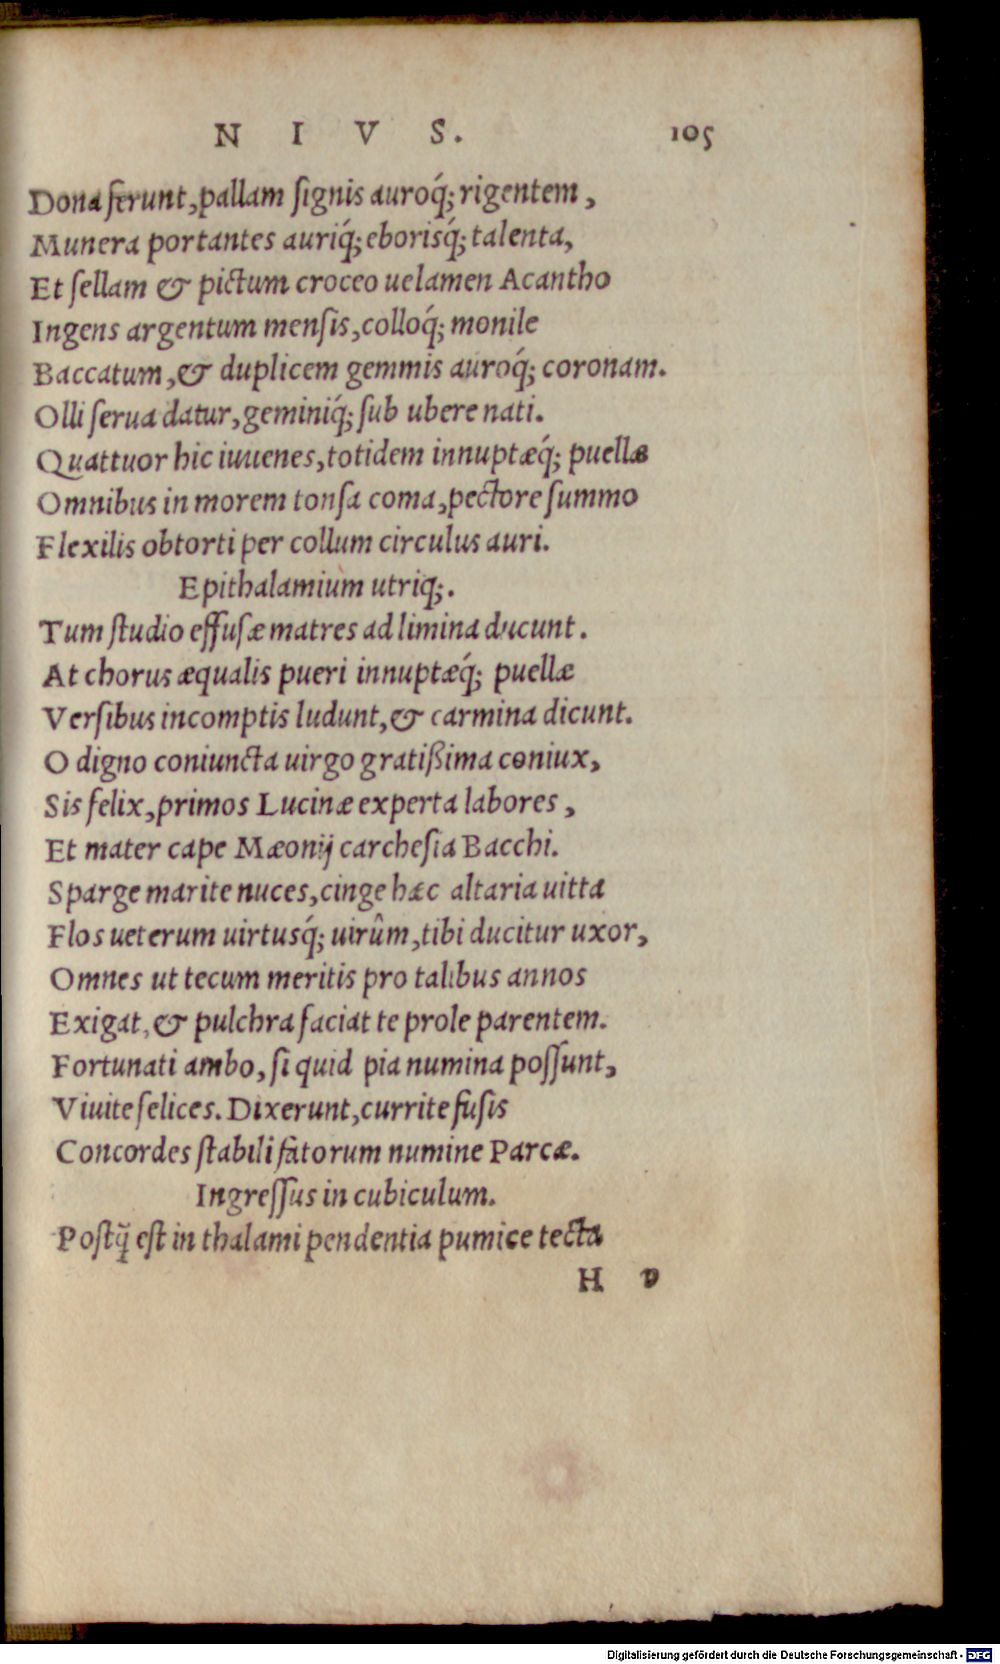 N I V S. 105
Dona ferunt, pallam signis auroq́; rigentem,
Munera portantes auriq́; eborisq́; talenta,
Et sellam & pictum croceo uelamen Acantho
Ingens argentum mensis, colloq́; monile
Baccatum, & duplicem gemmis auroq́; coronam.
Olli serua datur, geminiq́; sub ubere nati.
Quattuor hic iuuenes, totidem innuptæq́; puellæ
Omnibus in morem tonsa coma, pectore summo
Flexilis obtorti per collum circulus auri.
Epithalamium utriq;.
Tum studio effusæ matres ad limina ducunt.
At chorus æqualis pueri innuptæq́; puellæ
Versibus incomptis ludunt, & carmina dicunt.
O digno coniuncta uirgo gratißima coniux,
Sis felix, primos Lucinæ experta labores,
Et mater cape Mæonij carchesia Bacchi.
Sparge marite nuces, cinge hæc altaria uitta
Flos ueterum uirtusq́; uirûm, tibi ducitur uxor,
Omnes ut tecum meritis pro talibus annos
Exigat, & pulchra faciat te prole parentem.
Fortunati ambo, si quid pia numina possunt,
Viuite felices. Dixerunt, currite fusis
Concordes stabili fatorum numine Parcæ.
Ingressus in cubiculum.
Postq̃ est in thalami pendentia pumice tecta
H v
Digitalisierung gefördert durch die Deutsche Forschungsgemeinschaft - DFG